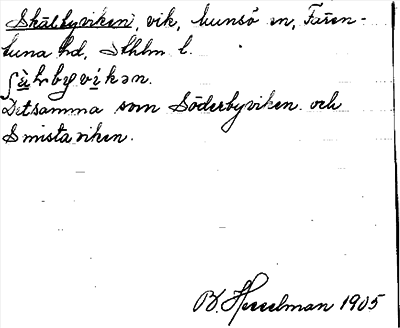 Skälbyviken, vik, Munsö sn, Fären-
tuna hd, Sthlm l.
ʃä̀lbyvíkən.
Detsamma som Söderbyviken och
Smistaviken.
B. Hesselman 1905